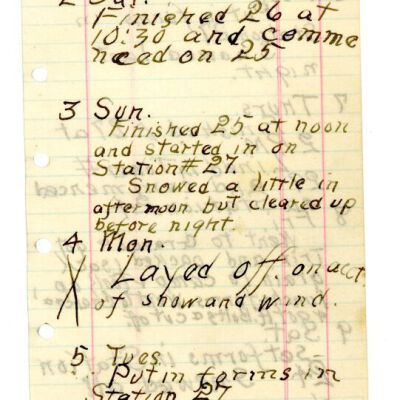 2 Sat.
Finished 26 at
10:30 and comme
nced on 25
3 Sun.
Finished 25 at noon
and started in on
Station # 27.
Snowed a little in
afternoon but cleared up
before night.
4 Mon.
Layed off. on acct.
of snow and wind.
5 Tues
Put in forms in
Station 27